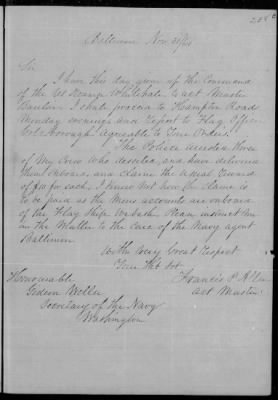 Baltimore Nov 30/61
Sir
I have this day given up the Command
of the US Steamer Whitehall to act Master
Baulsir I shall proceed to Hampton Roads
Monday evening and report to Flag Officer
Goldsborough agreeable to Your Orders.
The Police arrested three
of My Crew who deserted, and have delivered
them onboard, and claim the usual reward
of $10 for each, I know not how the claim is
to be paid as the Mens accounts are onboard
of the Flag Ship Wabash. Please instruct me
in the Matter to the care of the Navy agent
Baltimore
With Very Great Respect
Your Obt Svt
Francis P. Allen
act Master
Honourable
Gideon Welles
Secretary of the Navy
Washington